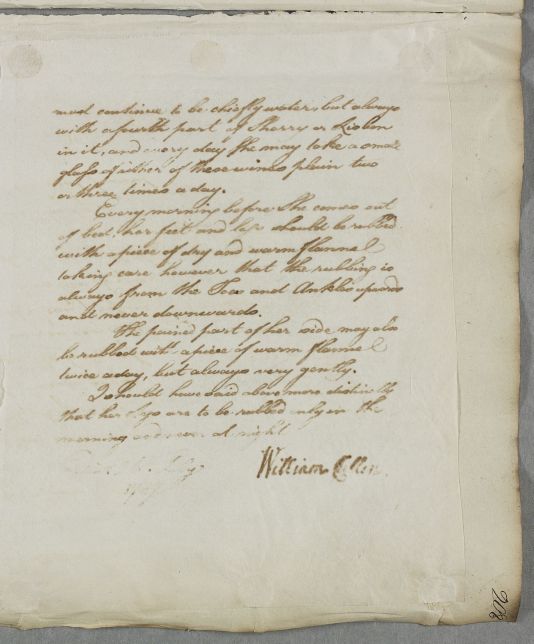 must continue to be chiefly water, but always
with a fourth part of Sherry or Lisbon
in it, and every day She may take a small
glass of either of these wines plain two
or three times a day.
Every morning before She comes out
of bed, her feet and legs should be rubbed
with a piece of dry and warm flannel
taking care however that the rubbing is
always from the Toes and Ankles upwards
and never downwards.
The pained part of her side may also
be rubbed with a piece of warm flannel
twice a day, but always very gently.
I should have said above more distinctly
that her Legs are to be rubbed only in the
morning and never at night
William Cullen
208